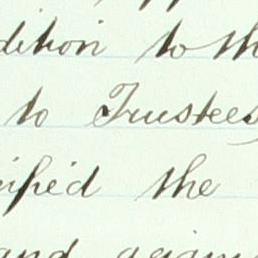 dition to th
to Trustees
cified the
and again